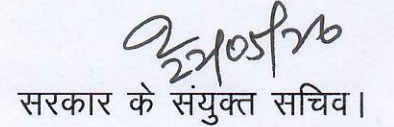 22/05/26
सरकार के संयुक्त सचिव।